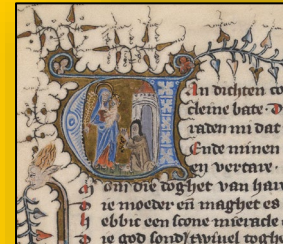 an dichten co
cleine bate · D
raden mi dat
Ende minen
en vertare ·
Om die doghet van hare
ie moeder en maghet es
ebbic een scone mieracle
ie god sond' twiuel toghe